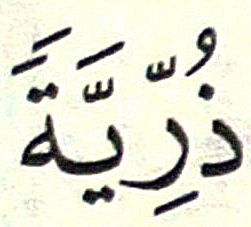 ذُرِّيَّةً